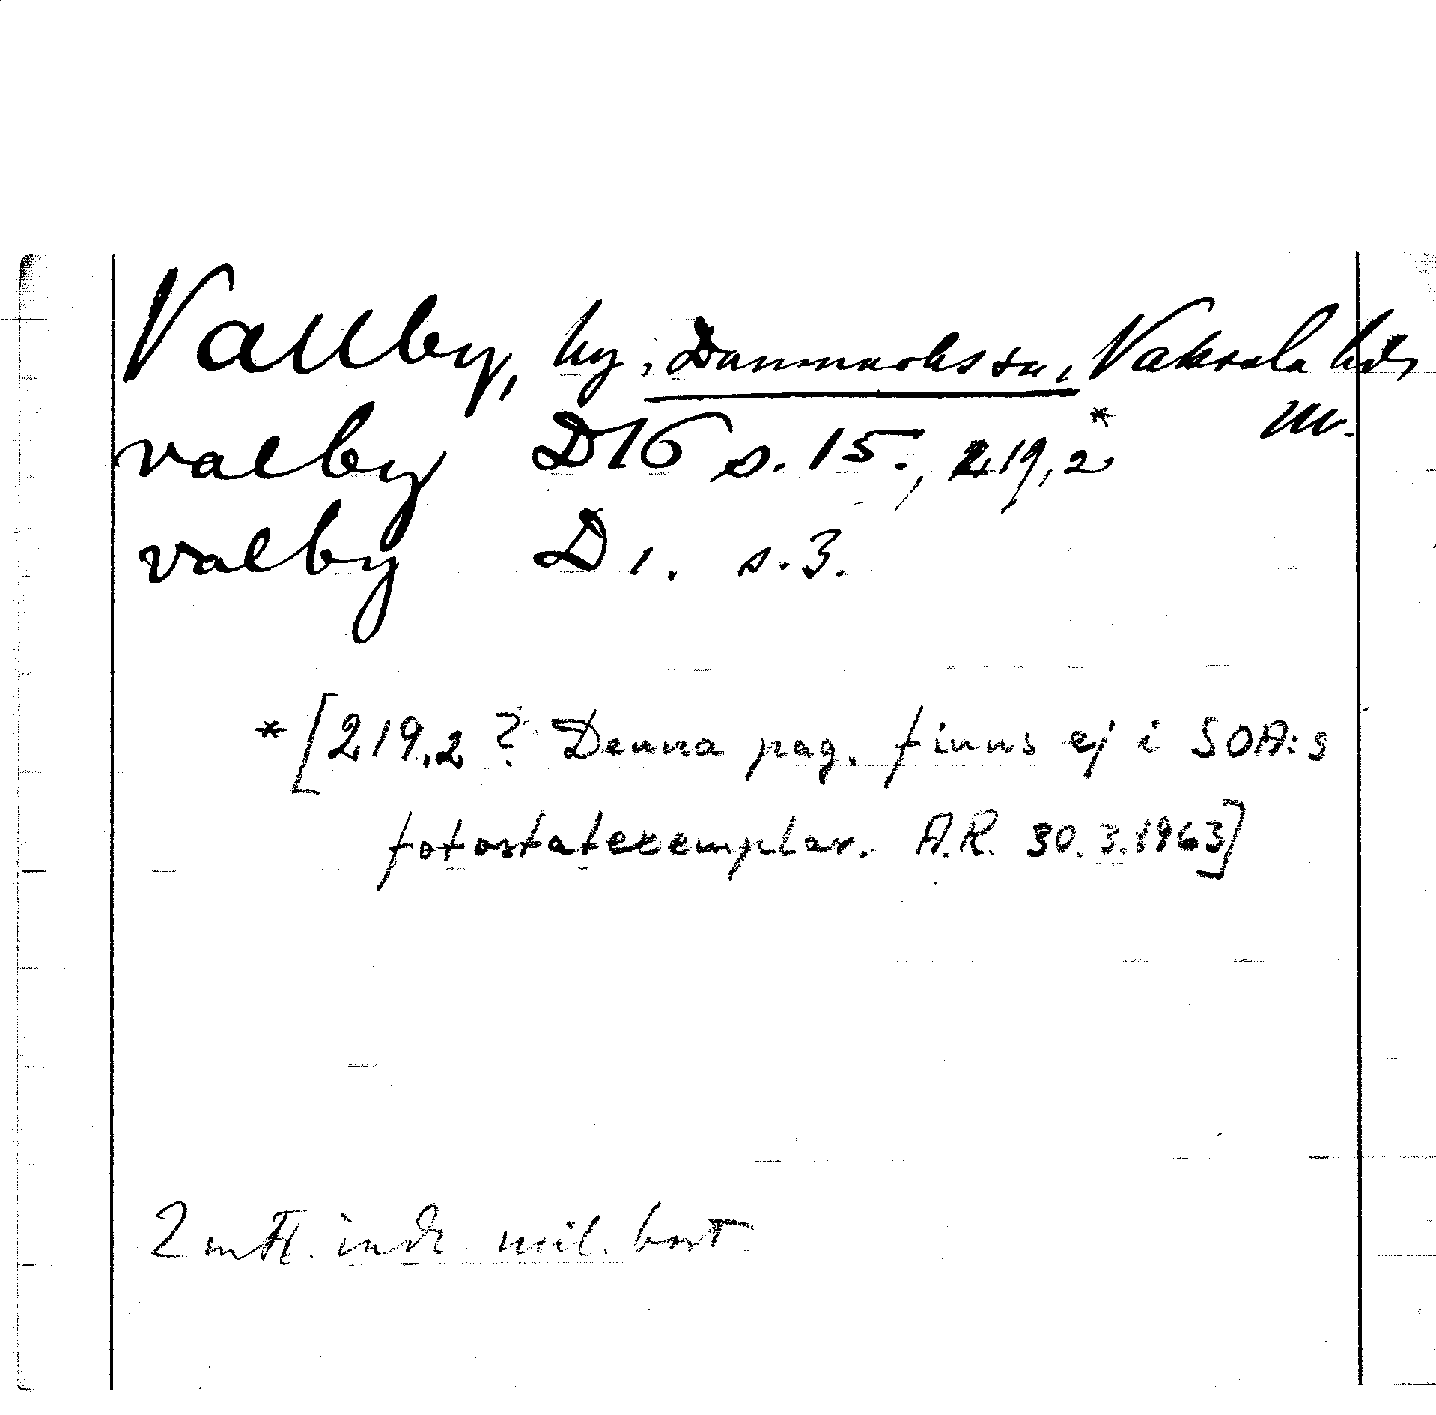 Vallby, by, Danmarks sn, Vaksala hd,
valby D16 s. 15., 219,2*
valby D1. s. 3.
* [219,2 ? Denna pag. finns ej i SOA:s
fotostatexemplar. A.R. 30.3.1963]
2 mtl.